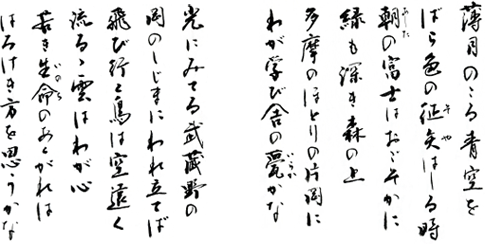 薄月のこる青空を
ばら色の征矢はしる時
朝の富士はおごそかに
緑も深き森の上
多摩のほとりの片岡に
わが学び舎の甍かな
光にみてる武蔵野の
岡のしじまにわれ立てば
飛び行く鳥は空遠く
流るゝ雲はわが心
若き生命のあくがれは
はろけき方を思うかな